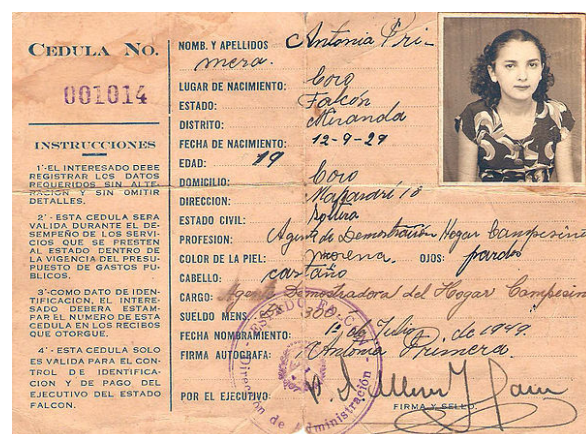 CEDULA No.
001014
INSTRUCCIONES
1'-EL INTERESADO DEBE
REGISTRAR LOS DATOS
REQUERIDOS SIN ALTE-
RACION Y SIN OMITIR
DETALLES.
2' - ESTA CEDULA SERA
VALIDA DURANTE EL DE-
SEMPEÑO DE LOS SERVI-
CIOS QUE SE PRESTEN
AL ESTADO DENTRO DE
LA VIGENCIA DEL PRESU-
PUESTO DE GASTOS PU-
BLICOS.
3'-COMO DATO DE IDEN-
TIFICACION, EL INTERE-
SADO DEBERA ESTAM-
PAR EL NUMERO DE ESTA
CEDULA EN LOS RECIBOS
QUE OTORGUE.
4' - ESTA CEDULA SOLO
ES VALIDA PARA EL CON-
TROL DE IDENTIFICA-
CION Y DE PAGO DEL
EJECUTIVO DEL ESTADO
FALCON.
NOMB. Y APELLIDOS Antonia Pri-
mera.
LUGAR DE NACIMIENTO: Coro
ESTADO: Falcón
DISTRITO: Miranda
FECHA DE NACIMIENTO: 12-9-29
EDAD: 19
DOMICILIO: Coro
DIRECCION: Mapararí 18
ESTADO CIVIL: Soltera
PROFESION: Agente de Demostración Hogar Campesino
COLOR DE LA PIEL: morena. OJOS: pardos
CABELLO: castaño
CARGO: Agente Demostradora del Hogar Campesino
SUELDO MENS. 300
FECHA NOMBRAMIENTO: 1º de Julio de 1949.
FIRMA AUTOGRAFA: Antonia Primera.
POR EL EJECUTIVO:
FIRMA Y SELLO.
Dirección de Administración